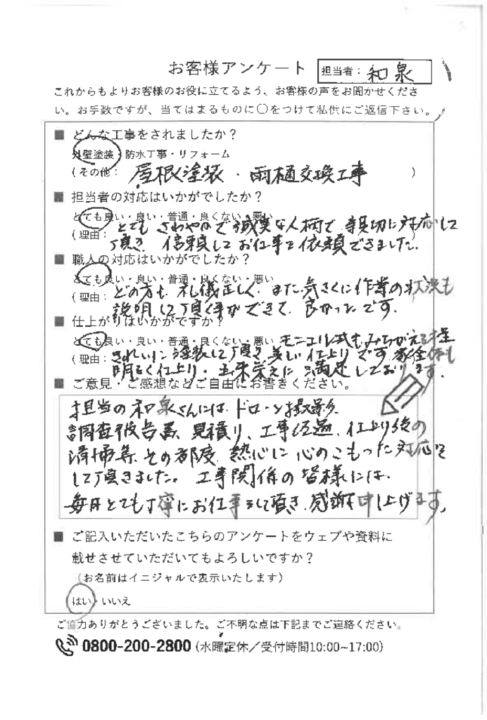 お客様アンケート 担当者： 和泉
これからもよりお客様のお役に立てるよう、お客様の声をお聞かせくださ
い。お手数ですが、当てはまるものに○をつけて私供にご返信下さい。
■ どんな工事をされましたか？
外壁塗装・防水工事・リフォーム
（その他： 屋根塗装・雨樋交換工事 ）
■ 担当者の対応はいかがでしたか？
とても良い・良い・普通・良くない・悪い
（理由： とてもさわやかで誠実な人柄で親切に対応して
頂き 信頼してお仕事を依頼できました。
■ 職人の対応はいかがでしたか？
とても良い・良い・普通・良くない・悪い
（理由： どの方も礼儀正しく、また気さくに作業の状況も
説明して頂く事ができて、良かったです。
■ 仕上がりはいかがですか？
とても良い・良い・普通・良くない・悪い モニエル瓦もみちがえる程
（理由： きれいに塗装して頂き美しい仕上りです 家全体も
明るく仕上り・出来栄えに満足しております。
■ ご意見・ご感想などご自由にお書きください。
担当の和泉さんには、ドローン撮影
調査報告書、見積り、工事経過、仕上り後の
清掃等、その都度、熱心に心のこもった対応を
して頂きました。工事関係の皆様には、
毎日とても丁寧にお仕事をして頂き、感謝申し上げます。
■ ご記入いただいたこちらのアンケートをウェブや資料に
載せさせていただいてもよろしいですか？
（お名前はイニシャルで表示いたします）
はい・いいえ
ご協力ありがとうございました。ご不明な点は下記までご連絡ください。
0800-200-2800（水曜定休／受付時間10:00~17:00）